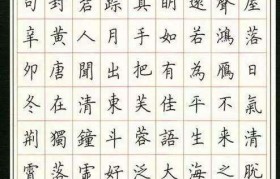 屋落日氣清脱
聲鴻雁不來之
遠若為平生海
明如有佳語大
真手把芙蓉泛
踪月出東斗好
碧人聞清鐘虛
封黃唐在獨落
句辛卯冬荆霄